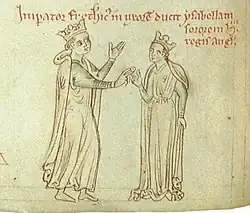 Imp̃ator fr̃ethic̃ in uxorẽ ducit ysabellam
sororem h̃.
regis angl̃.